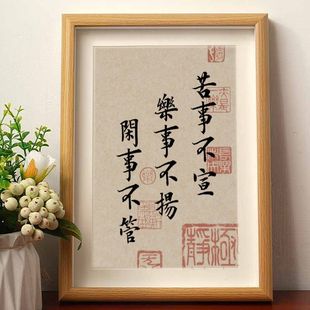 苦事不宣
樂事不揚
閑事不管